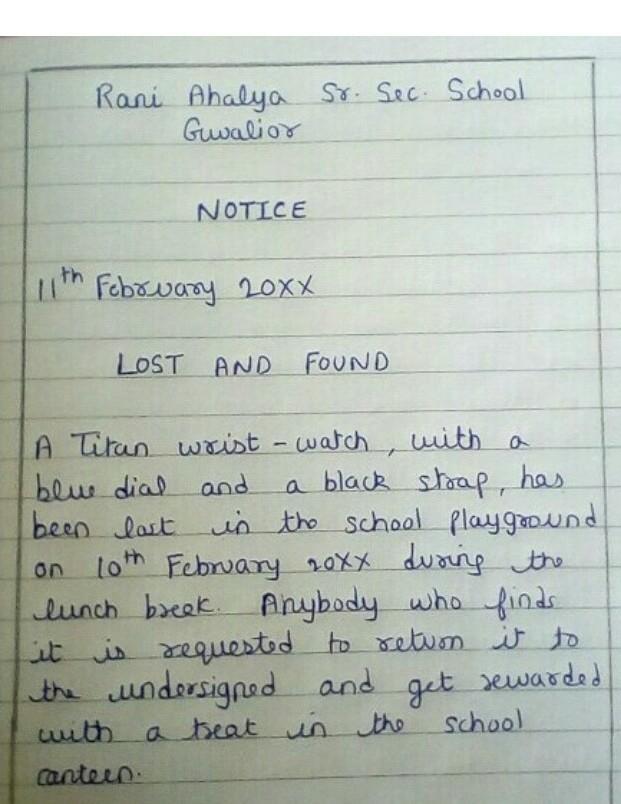 Rani Ahalya Sr. Sec. School
Gwalior
NOTICE
11th February 20XX
LOST AND FOUND
A Titan wrist-watch, with a
blue dial and a black strap, has
been lost in the school playground
on 10th February 20XX during the
lunch break. Anybody who finds
it is requested to return it to
the undersigned and get rewarded
with a treat in the school
canteen.